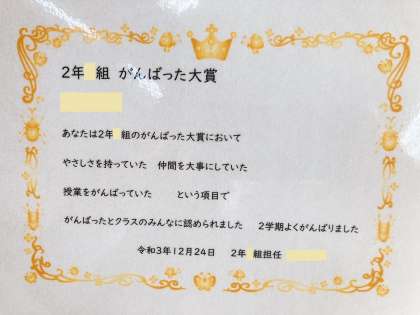 2年 組 がんばった大賞
あなたは2年 組のがんばった大賞において
やさしさを持っていた 仲間を大事にしていた
授業をがんばっていた という項目で
がんばったとクラスのみんなに認められました 2学期よくがんばりました
令和3年12月24日 2年 組担任